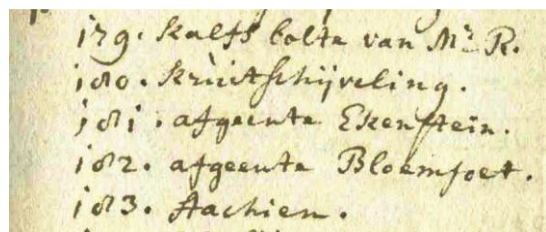 179. Kalfs bolte van Mr. R.
180. Krùitschijveling.
181. afgeente Ekenstein.
182. afgeente Bloemsoet.
183. Aachien.